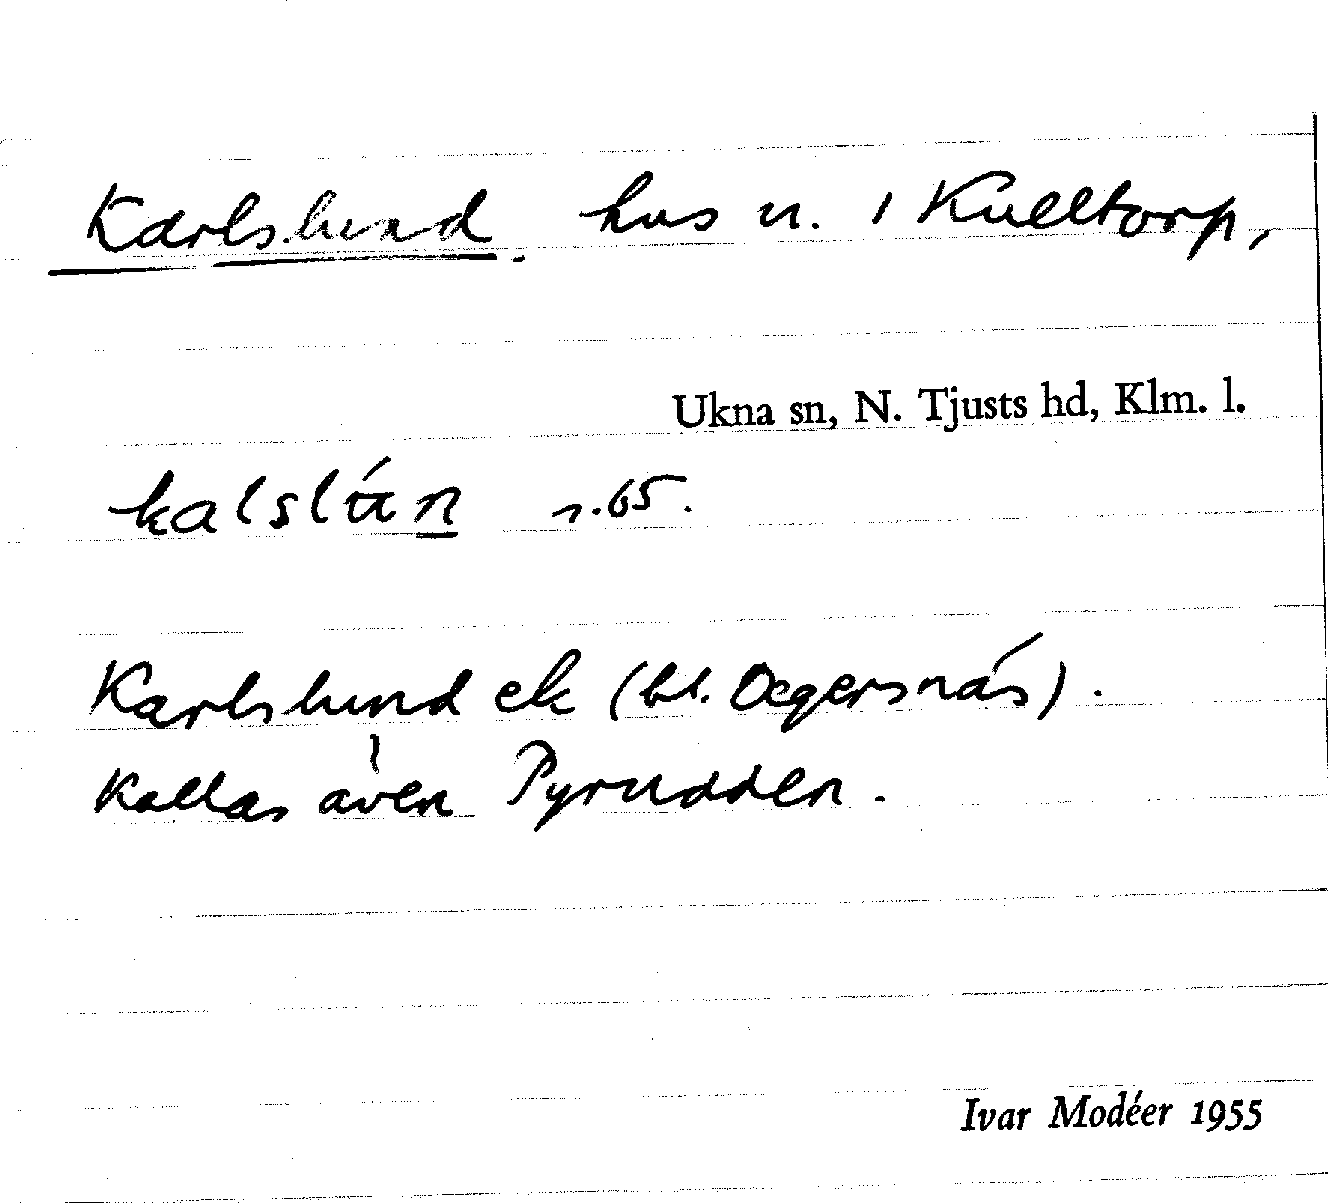 Karlslund, hus n. i Kulltorp,
Ukna sn, N. Tjusts hd, Klm. l.
kalslún r. 65.
Karlslund ek (bl. Oegersnäs).
Kallas även Pyrudden.
Ivar Modéer 1955